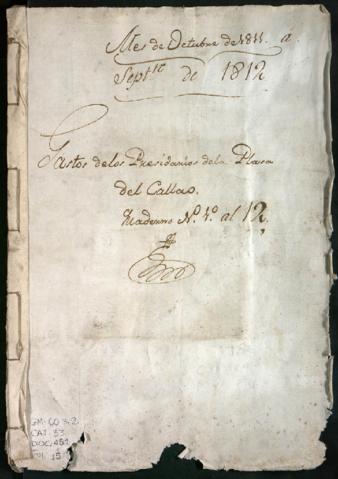 Mes de Octubre de 1811. a
Septre de 1812
Gastos delos Presidarios dela Plasa
del Callao.
Kuaderno No. 1o. al 12,
GM-CO 3.2
CAJ. 33
DOC. 452
15